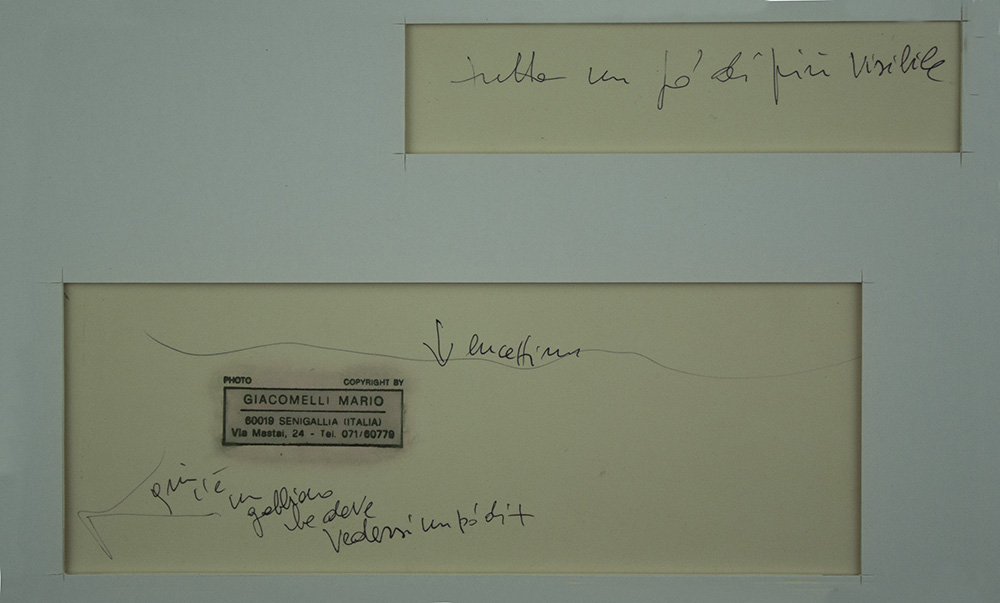 tutto un pó di più visibile
PHOTO COPYRIGHT BY
GIACOMELLI MARIO
60019 SENIGALLIA (ITALIA)
Via Mastai, 24 - Tel. 071/60779
qui c'è un
gabbiano
che deve
vedersi un pó di +